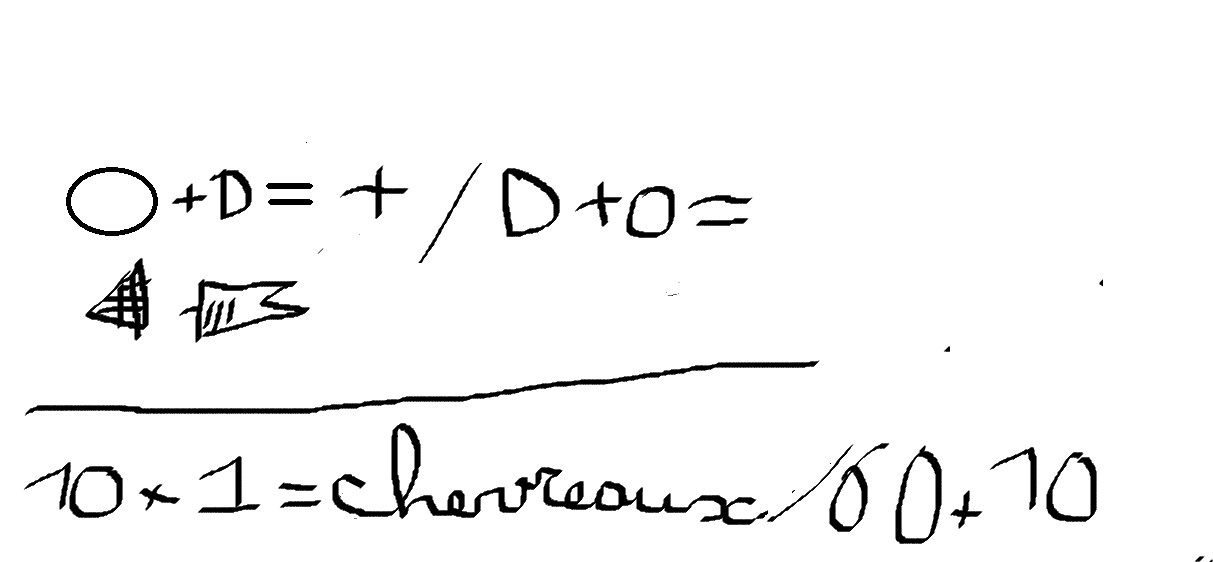 O + D = + / D + O =
10 x 1 = chevreaux / 60 + 10